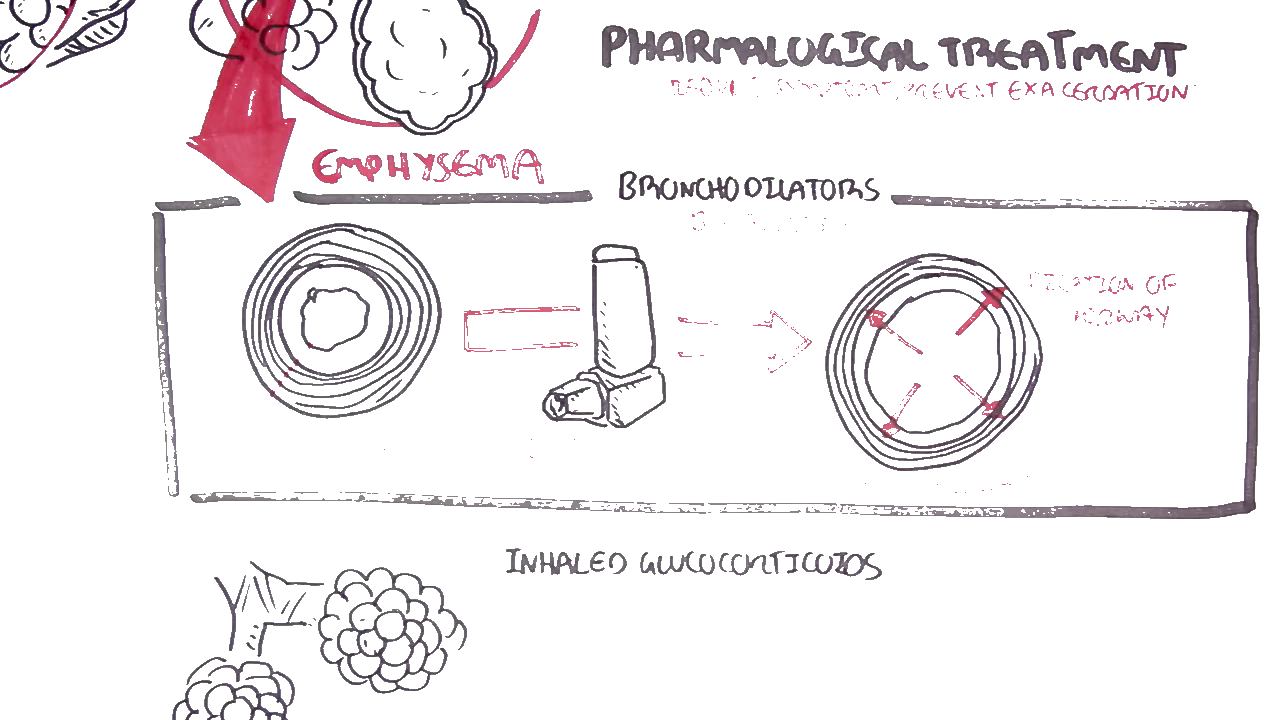 PHARMALOGICAL TREATMENT
PREVENT EXACERBATION
EMPHYSEMA
BRONCHODILATORS
DILATION OF
AIRWAY
INHALED GLUCOCORTICOIDS